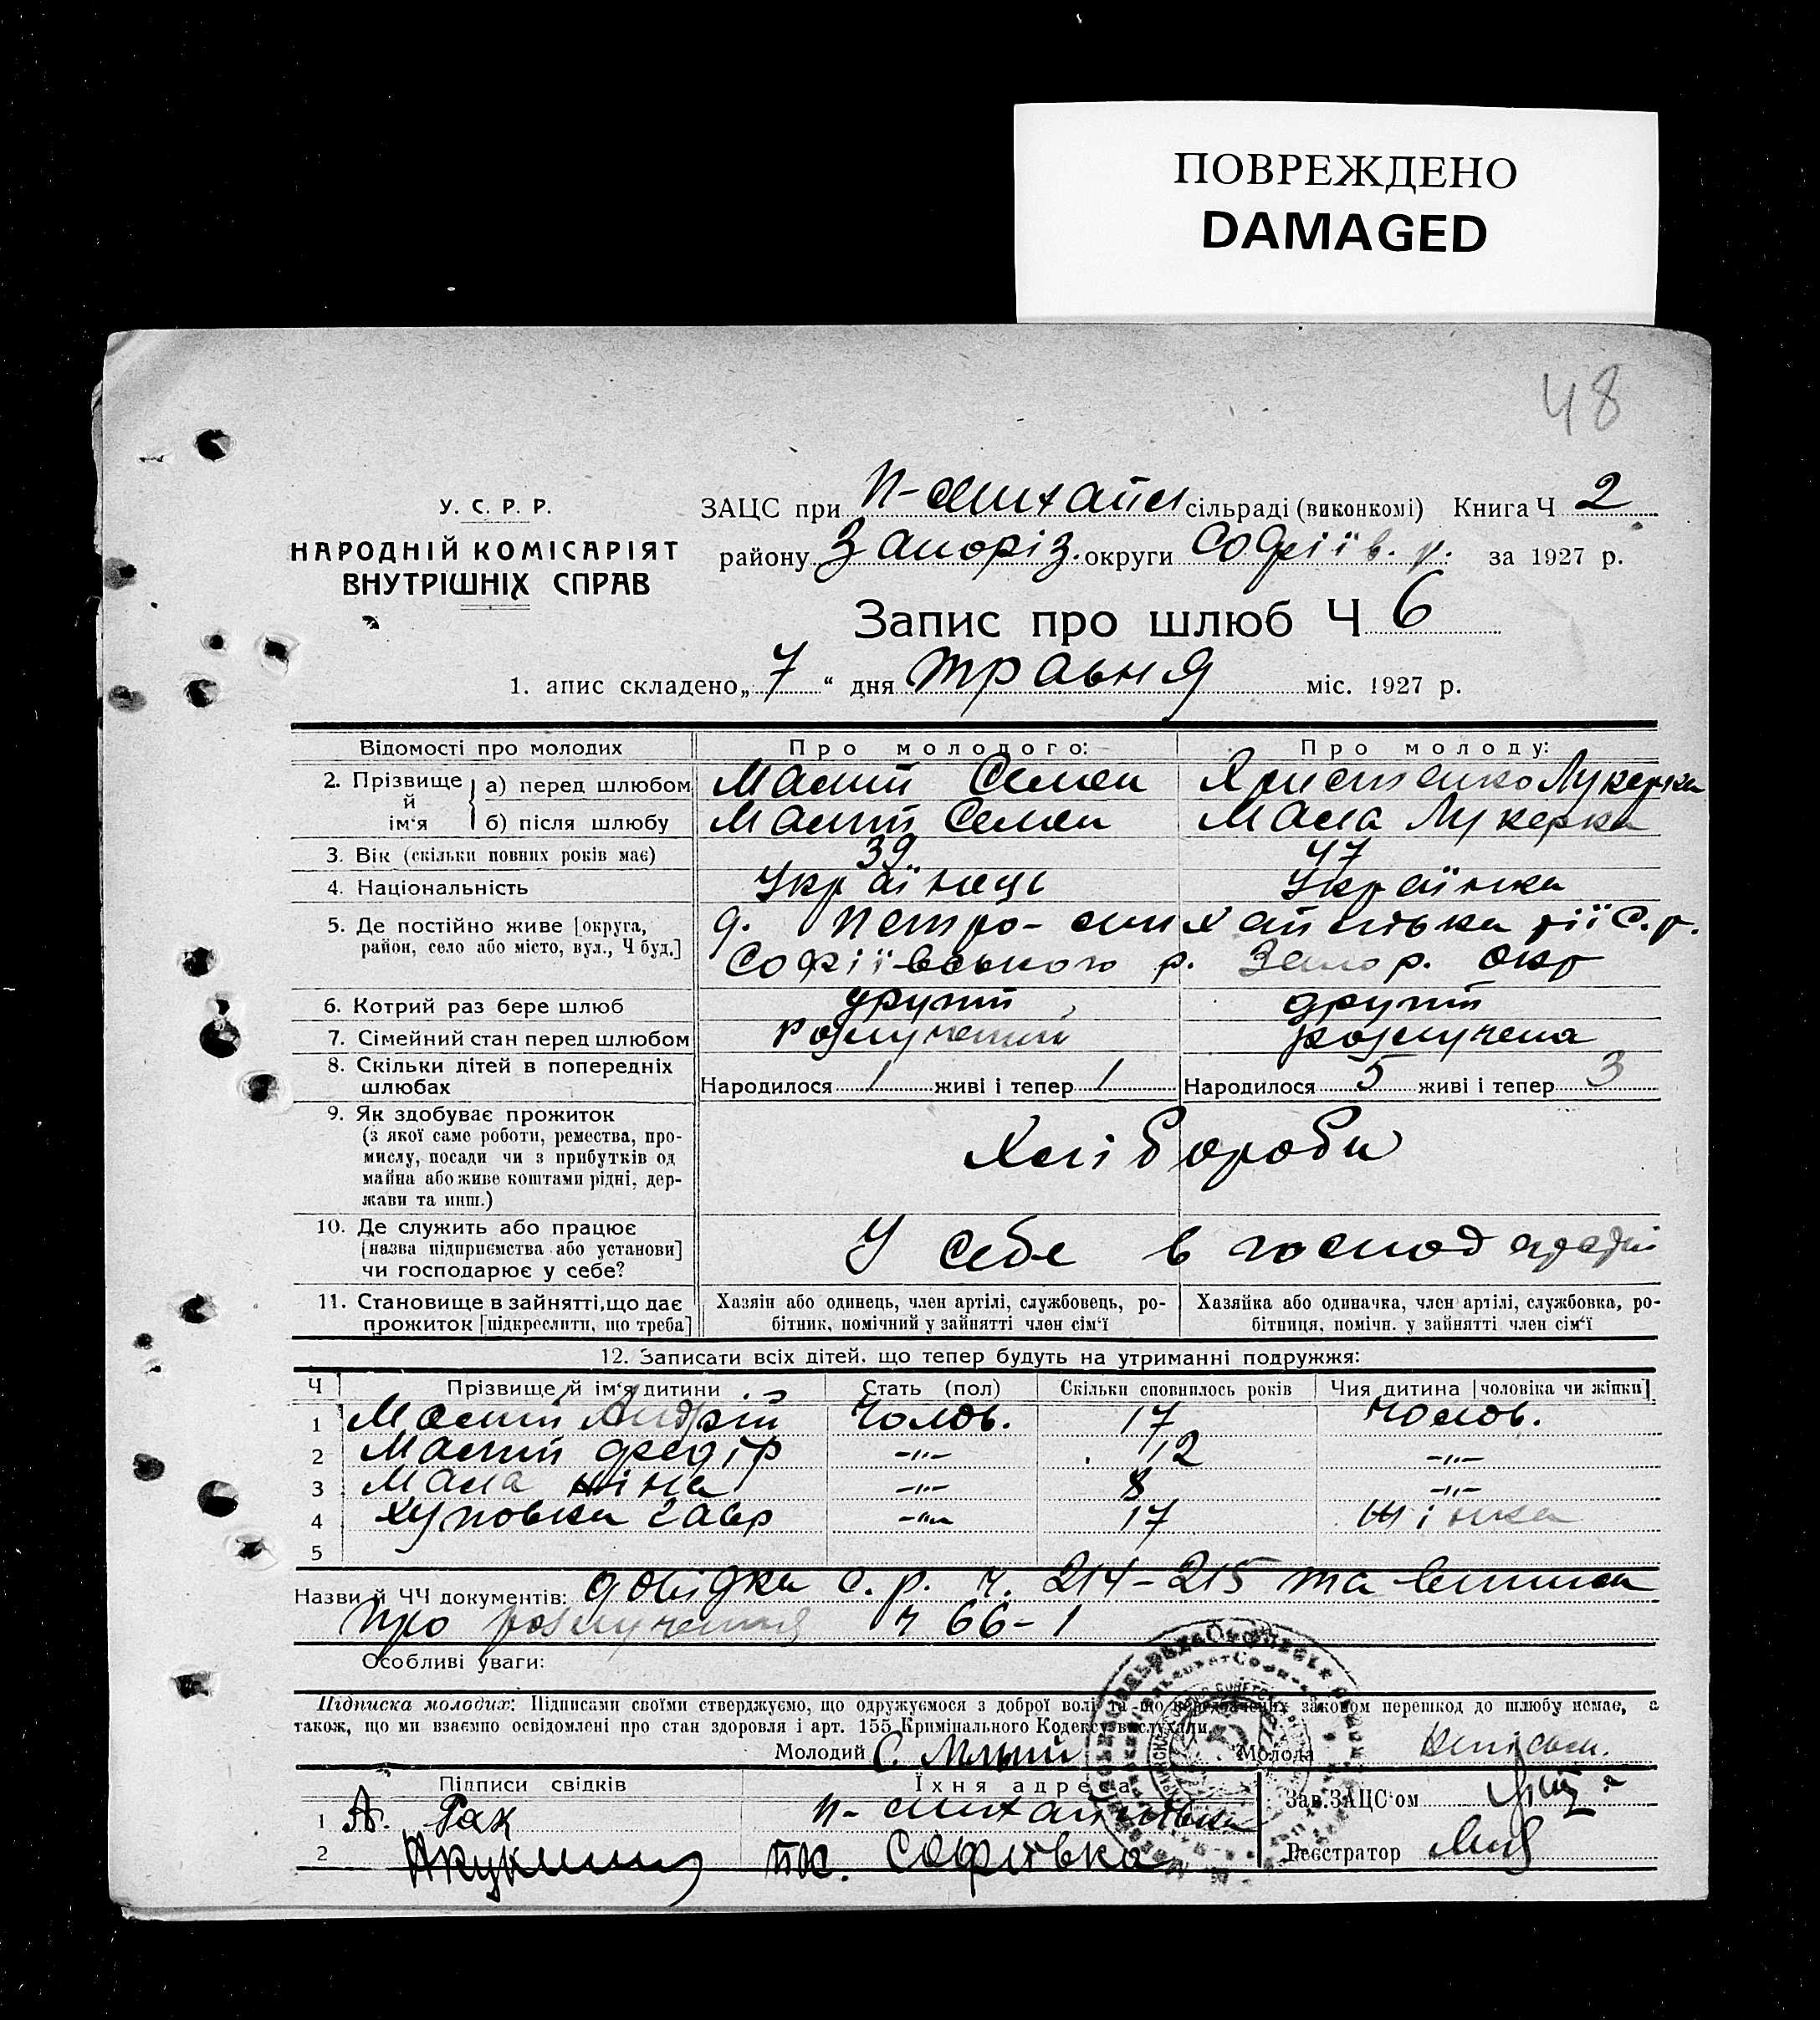 ПОВРЕЖДЕНО
DAMAGED
48
У. С. Р. Р.
НАРОДНІЙ КОМІСАРІЯТ
ВНУТРІШНІХ СПРАВ
ЗАЦС при П-Михайл сільраді (виконкомі) Книга Ч 2
району Запоріз. округи Софіїв. р. за 1927 р.
Запис про шлюб Ч 6
1. апис складено „7“ дня травня міс. 1927 р.
Відомості про молодих Про молодого: Про молоду:
2. Прізвище й ім‘я а) перед шлюбом Малий Семен Христенко Лукерка
б) після шлюбу Малий Семен Мала Лукерка
3. Вік (скільки повних років має) 39 47
4. Національність Українець Українка
5. Де постійно живе [округа, д. Петро-Михайлівка тії С. р.
район, село або місто, вул., Ч буд.] Софіївського р. Запор. окр
6. Котрий раз бере шлюб другий другий
7. Сімейний стан перед шлюбом розлучений розлучена
8. Скільки дітей в попередніх
шлюбах Народилося 1 живі і тепер 1 Народилося 5 живі і тепер 3
9. Як здобуває прожиток
(з якої саме роботи, ремества, про-
мислу, посади чи з прибутків од Хлібороби
майна або живе коштами рідні, дер-
жави та инш.)
10. Де служить або працює
[назва підприємства або установи] У себе в господарстві
чи господарює у себе?
11. Становище в зайнятті, що дає Хазяїн або одинець, член артілі, службовець, ро- Хазяйка або одиначка, член артілі, службовка, ро-
прожиток [підкреслити, що треба] бітник, помічний у зайнятті член сім‘ї бітниця, помічн. у зайнятті член сім‘ї
12. Записати всіх дітей, що тепер будуть на утриманні подружжя:
Ч Прізвище й ім‘я дитини Стать (пол) Скільки сповнилось років Чия дитина [чоловіка чи жінки]
1 Малий Андрій Чолов. 17 Чолов.
2 Малий Федір -"- 12 -"-
3 Мала Ніна -"- 8 -"-
4 Гавр -"- 17 Жінка
5
Назви й ЧЧ документів: довідки с. р. ч. 214-215 та виписи
про розлучення ч 66-1
Особливі уваги:
Підписка молодих: Підписами своїми стверджуємо, що одружуємося з доброї волі та що передбачених законом перешкод до шлюбу немає, а
також, що ми взаємно освідомлені про стан здоровля і арт. 155 Кримінального Кодексу вислухали.
Молодий С Малий Молода
Підписи свідків Їхня адреса
Зав. ЗАЦС‘ом
1 А. Гак П-Михайлівка
Реєстратор
2 пк. Софіївка